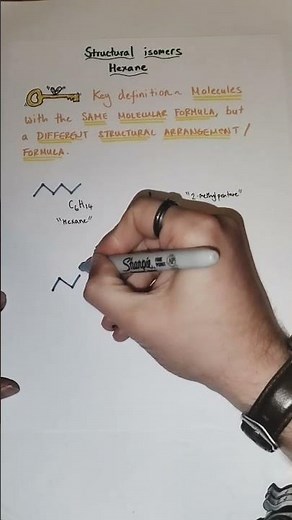 Structural isomers
Hexane
Key definition ~ Molecules
with the SAME MOLECULAR FORMULA, but
a DIFFERENT STRUCTURAL ARRANGEMENT /
FORMULA.
"2-methylpentane"
C6H14
"Hexane"
Sharpie